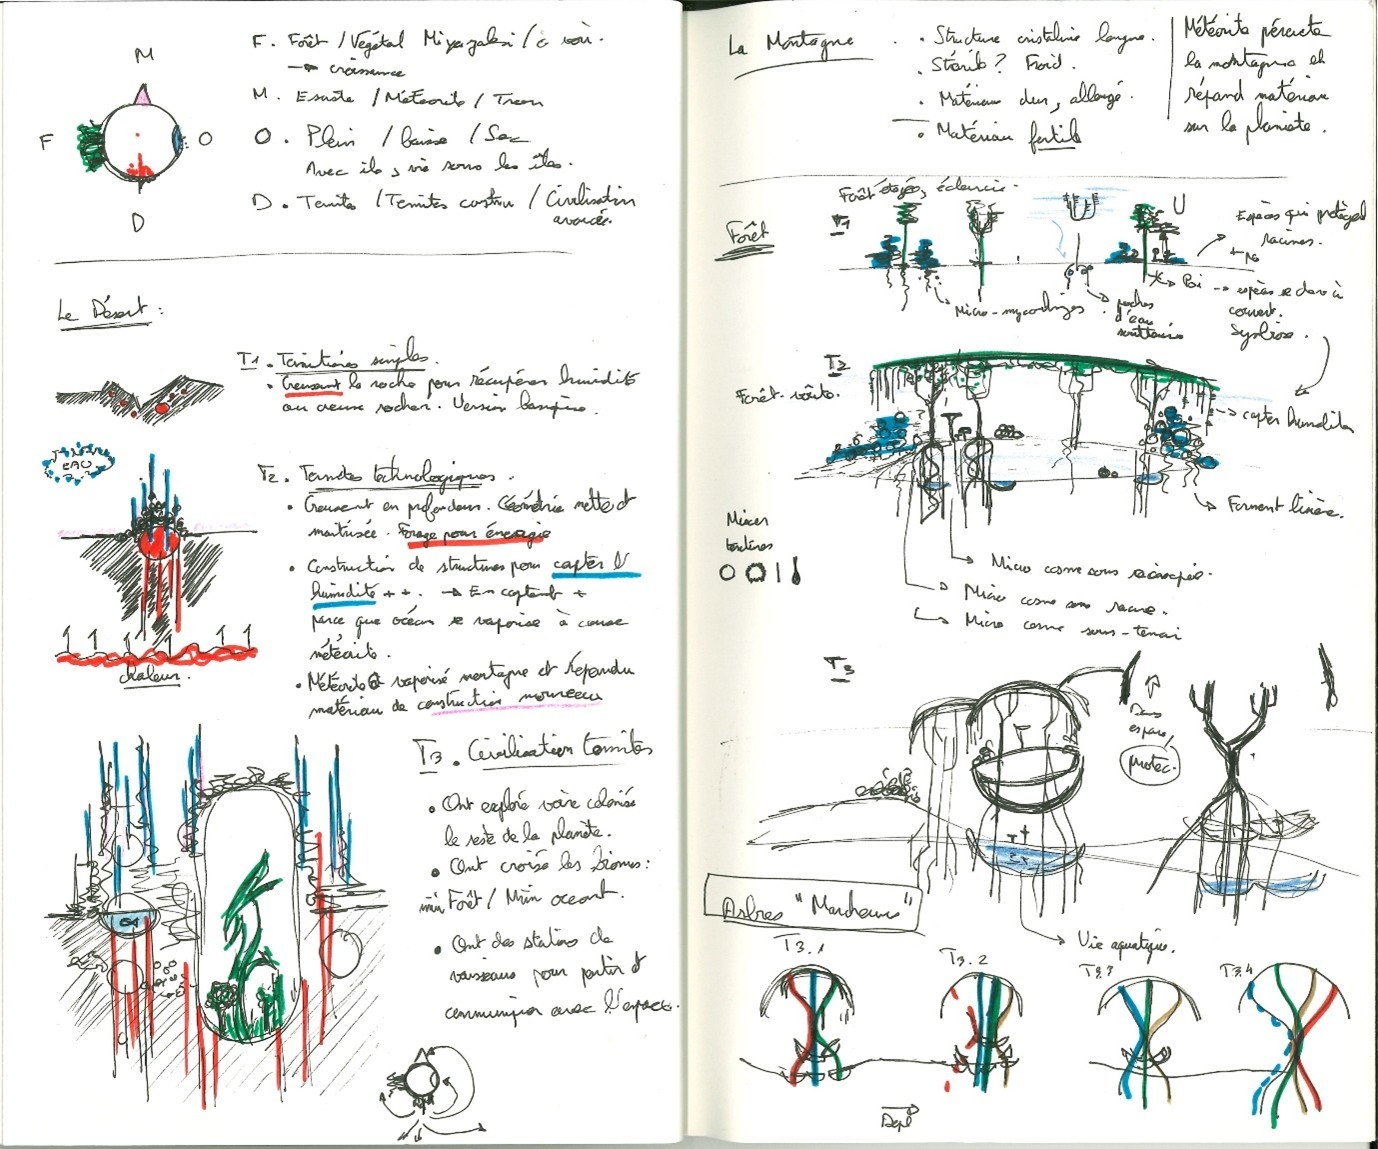 M
F
O
D
F. Forêt / Végétal Miyazaki / à voir.
→ croissance
M. / Météorite /
O. Plein / baisse / Sec
Avec île, vie sous les îles.
D. Termites / Termites constru / Civilisation
avancée.
Le Désert :
T1. Termitières simples.
• Creusent la roche pour récupérer humidité
ou creuse rocher. Version
EAU
T2. Termites technologiques.
• Creusent en profondeur. Géométrie nette et
maitrisée. Forage pour énergie
• Construction de structures pour capter l'
humidité ++. → En captent +
parce que océan se vaporise à cause
météorite.
• Météorite a vaporisé montagne et répandu
matériau de construction nouveau
chaleur.
T3. Civilisation termites
• Ont exploré voire colonisé
le reste de la planète.
• Ont croisé les biomes :
mini Forêt / Mini océan.
• Ont des stations de
vaisseaux pour partir et
communiquer avec l'espace.
La Montagne
• Structure cristaline longue.
• Stérile ? Froid.
• Matériau dur, allongé.
• Matériau fertile
Météorite percute
la montagne et
répand matériau
sur la planète.
Forêt
Forêt étagée, éclaircie.
T1
Espèces qui protègent
racines.
Micro-mycorhizes
poches
d'eau
souterraines
→ espèces se dev à
couvert.
Symbiose.
T2
Forêt-voûte.
→ capter humidité
Forment lisière.
Mixer
→ Micro cosme sous canopée.
→ Micro cosme sous racine.
→ Micro cosme sous-terrain
T3
Dans
espace,
protec.
Arbres "Marcheurs"
Vie aquatique.
T3.1
T3.2
T3.3
T3.4
Depl